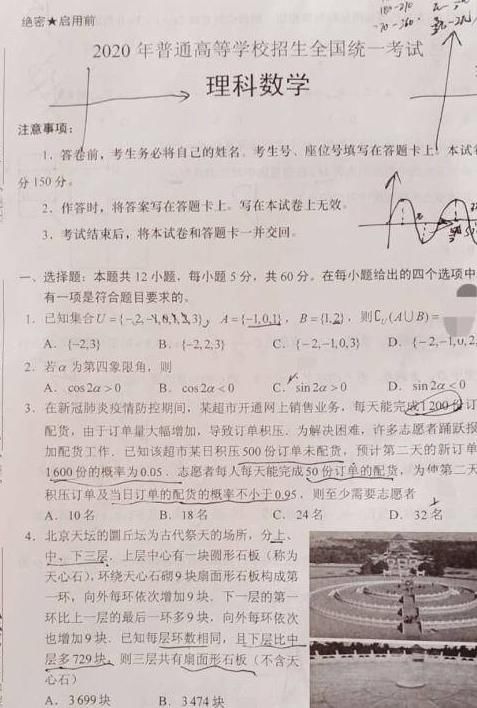 绝密★启用前
2020年普通高等学校招生全国统一考试
理科数学
注意事项：
1．答卷前，考生务必将自己的姓名、考生号、座位号填写在答题卡上。本试
分150分。
2．作答时，将答案写在答题卡上。写在本试卷上无效。
3．考试结束后，将本试卷和答题卡一并交回。
一、选择题：本题共12小题，每小题5分，共60分。在每小题给出的四个选项中
有一项是符合题目要求的。
1．已知集合U={-2,-1,0,1,2,3}，A={-1,0,1}，B={1,2}，则∁U(A∪B)=
A．{-2,3} B．{-2,2,3} C．{-2,-1,0,3} D．{-2,-1,0,2,
2．若α为第四象限角，则
A．cos2α>0 B．cos2α<0 C．sin2α>0 D．sin2α<0
3．在新冠肺炎疫情防控期间，某超市开通网上销售业务，每天能完成1200份订
配货，由于订单量大幅增加，导致订单积压．为解决困难，许多志愿者踊跃报
加配货工作．已知该超市某日积压500份订单未配货，预计第二天的新订单
1600份的概率为0.05．志愿者每人每天能完成50份订单的配货，为使第二天
积压订单及当日订单的配货的概率不小于0.95，则至少需要志愿者
A．10名 B．18名 C．24名 D．32名
4．北京天坛的圜丘坛为古代祭天的场所，分上、
中、下三层．上层中心有一块圆形石板（称为
天心石），环绕天心石砌9块扇面形石板构成第
一环，向外每环依次增加9块．下一层的第一
环比上一层的最后一环多9块，向外每环依次
也增加9块．已知每层环数相同，且下层比中
层多729块，则三层共有扇面形石板（不含天
心石）
A．3699块 B．3474块